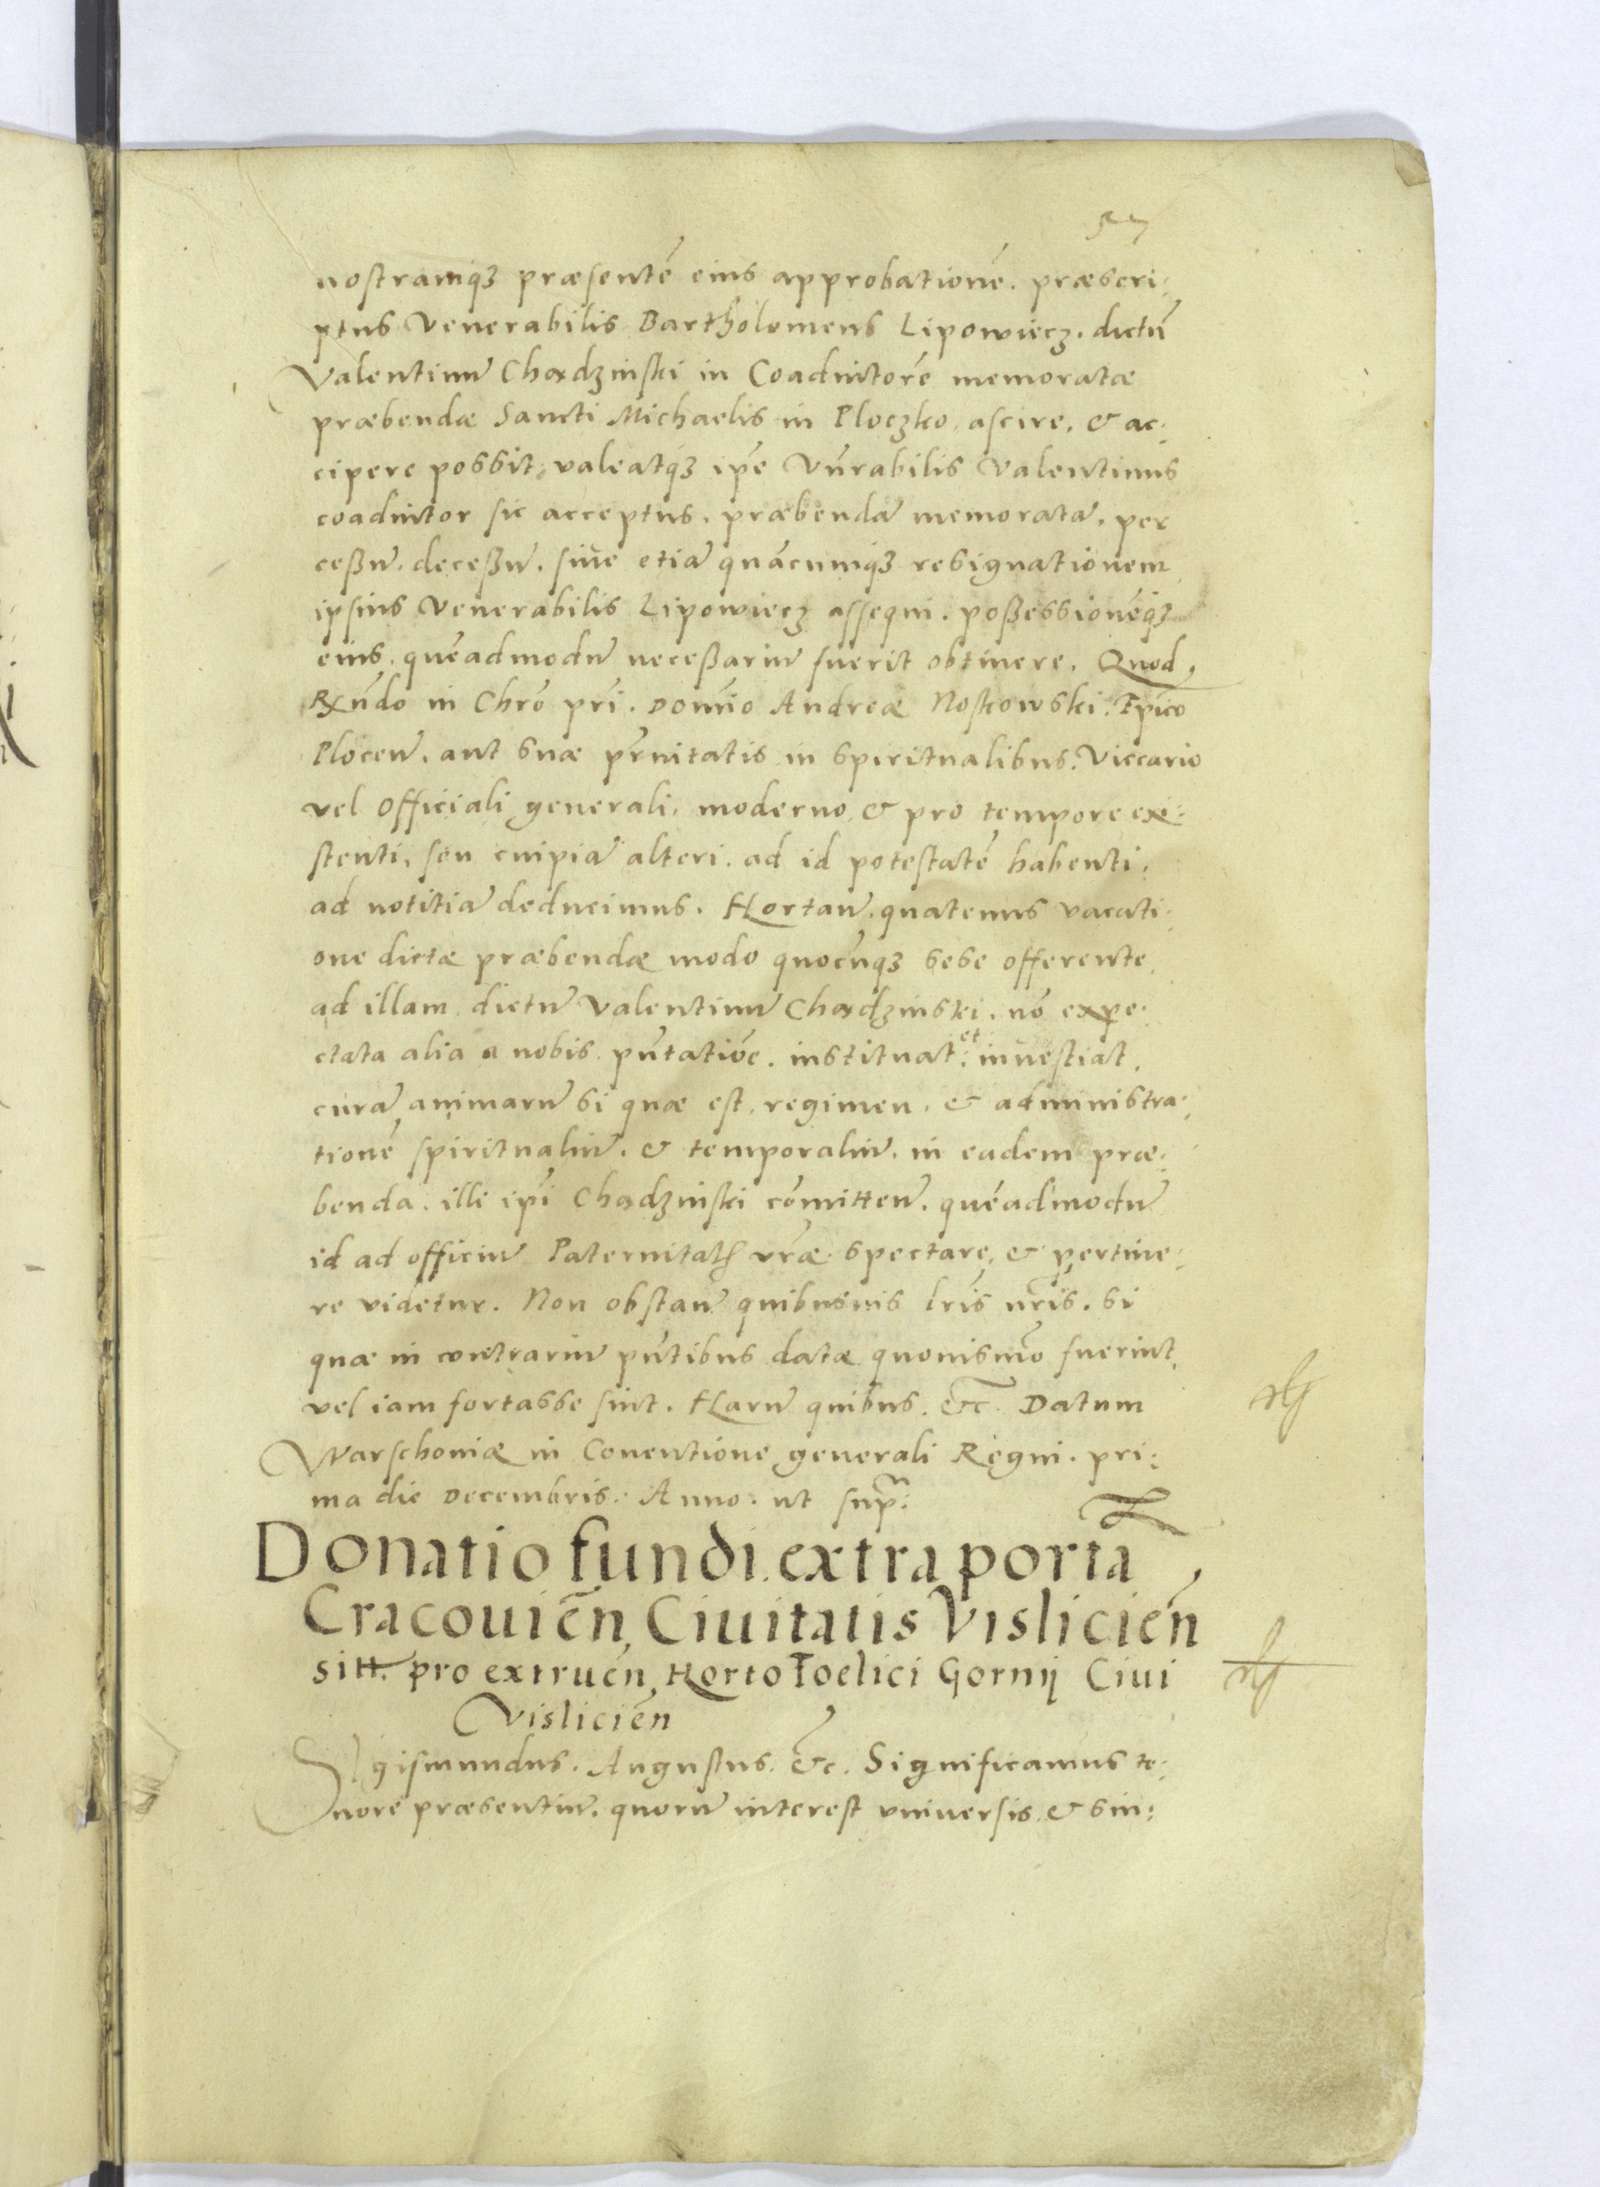 57
nostramq₃ præsentē eius approbationē. præscri:
ptus Venerabilis Bartholomeus Lipowiecz. dictū
Valentinū Chodzinski in Coadiutorē memoratæ
præbendæ Sancti Michaelis in Ploczko, ascire, & ac:
cipere possit, valeatq₃ ip̄e Vn̄rabilis Valentinus
coadiutor sic acceptus, præbendā memoratā, per
ceßū, deceßū, siue etiā quācumq₃ resignationem
ipsius Venerabilis Lipowiecz assequi, poßessionēq₃
eius, quēadmodū neceßariū fuerit obtinere. Quod,
Rn̄do in Chrō pr̄i. Domīo Andreæ Noskowski. Ep̄ico
Plocēn. aut suæ pr̄nitatis in spiritualibus. Viccario
vel officiali generali, moderno & pro tempore exi:
stenti, seu cuipiā alteri. ad id potestatē habenti,
ad notitiā deducimus. Hortan̄. quatenus vacati:
one dictæ præbendæ modo quocūq₃ sese offerente,
ad illam dictū Valentinū Chodzinski. nō expe:
ctata alia a nobis pn̄tatiōe. instituat. et inuestiat,
curā animarū si quæ est, regimen, & administra:
tionē spiritualiū, & temporaliū, in eadem præ:
benda, illi ip̄i Chodzinski cōmitten̄. quēadmodū
id ad officiū Paternitatis vr̄æ spectare, & pertine:
re videtur. Non obstan̄ quibusuis lr̄is nr̄is. si
quæ in contrariū pn̄tibus datæ quouismō fuerint
vel iam fortasse sint. Harū quibus. &c. Datum
Warschouiæ in Conuentione generali Regni. pri:
ma die Decembris. Anno. ut sup̄.
Donatio fundi extra portā
Cracouiēn, Ciuitatis Visliciēn
sitt. pro extruēn, Horto Foelici Gornij Ciui
Visliciēn
Sigismundus. Augustus. &c. Significamus te:
nore præsentiū. quorū interest vniuersis & sin: